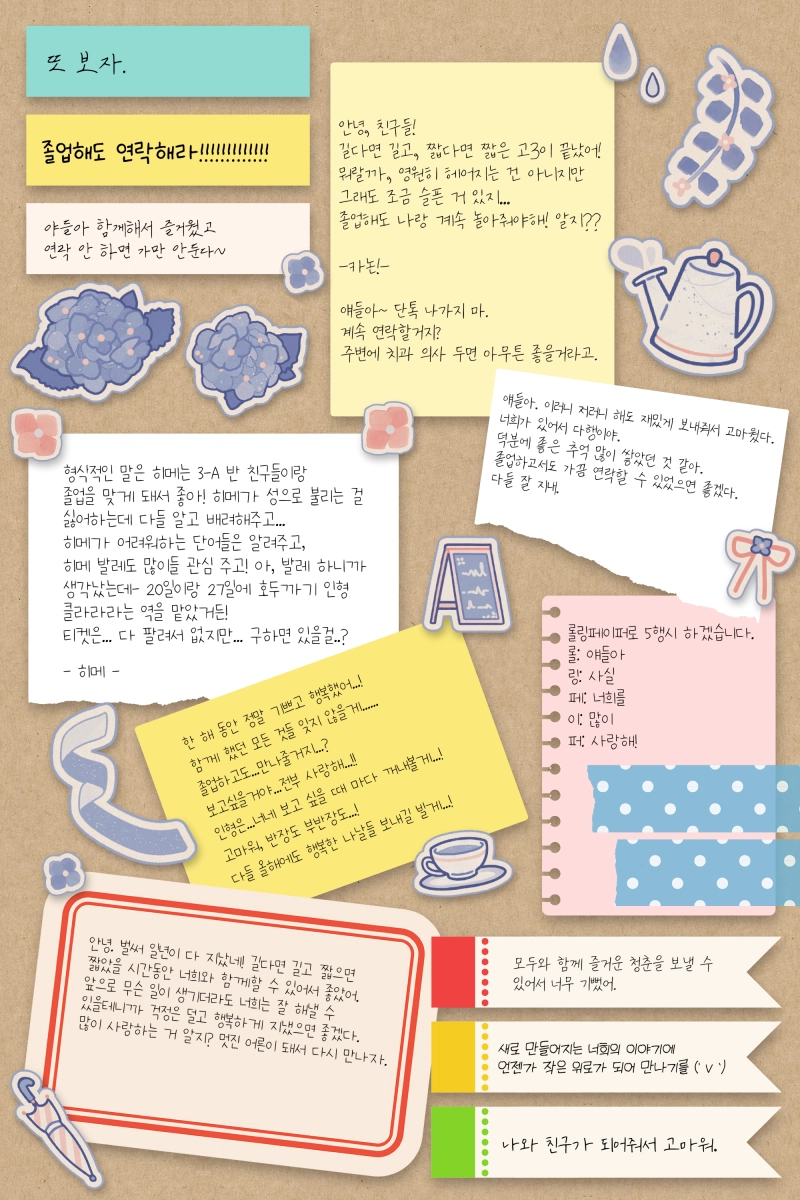 또 보자.
졸업해도 연락해라!!!!!!!!!!!!!
야들아 함께해서 즐거웠고
연락 안 하면 가만 안둔다~
안녕, 친구들!
길다면 길고, 짧다면 짧은 고3이 끝났어!
뭐랄까, 영원히 헤어지는 건 아니지만
그래도 조금 슬픈 거 있지...
졸업해도 나랑 계속 놀아줘야해! 알지??
-카논!-
얘들아~ 단톡 나가지 마.
계속 연락할거지?
주변에 치과 의사 두면 아무튼 좋을거라고.
얘들아. 이러니 저러니 해도 재밌게 보내줘서 고마웠다.
너희가 있어서 다행이야.
덕분에 좋은 추억 많이 쌓았던 것 같아.
졸업하고서도 가끔 연락할 수 있었으면 좋겠다.
다들 잘 지내.
형식적인 말은 히메는 3-A 반 친구들이랑
졸업을 맞게 돼서 좋아! 히메가 성으로 불리는 걸
싫어하는데 다들 알고 배려해주고...
히메가 어려워하는 단어들은 알려주고,
히메 발레도 많이들 관심 주고! 아, 발레 하니까
생각났는데- 20일이랑 27일에 호두까기 인형
클라라라는 역을 맡았거든!
티켓은... 다 팔려서 없지만... 구하면 있을걸..?
- 히메 -
롤링페이퍼로 5행시 하겠습니다.
롤: 얘들아
링: 사실
페: 너희를
이: 많이
퍼: 사랑해!
한 해 동안 정말 기쁘고 행복했어...!
함께 했던 모든 것들 잊지 않을게......
졸업하고도...만나줄거지...?
보고싶을거야...전부 사랑해...!!
인형은...너네 보고 싶을 때 마다 꺼내볼게...!
고마워, 반장도 부반장도...!
다들 올해에도 행복한 나날들 보내길 빌게...!
안녕. 벌써 일년이 다 지났네! 길다면 길고 짧으면
짧았을 시간동안 너희와 함께할 수 있어서 좋았어.
앞으로 무슨 일이 생기더라도 너희는 잘 해낼 수
있을테니까 걱정은 덜고 행복하게 지냈으면 좋겠다.
많이 사랑하는 거 알지? 멋진 어른이 돼서 다시 만나자.
모두와 함께 즐거운 청춘을 보낼 수
있어서 너무 기뻤어.
새로 만들어지는 너희의 이야기에
언젠가 작은 위로가 되어 만나기를 (˙ v ˙)
나와 친구가 되어줘서 고마워.